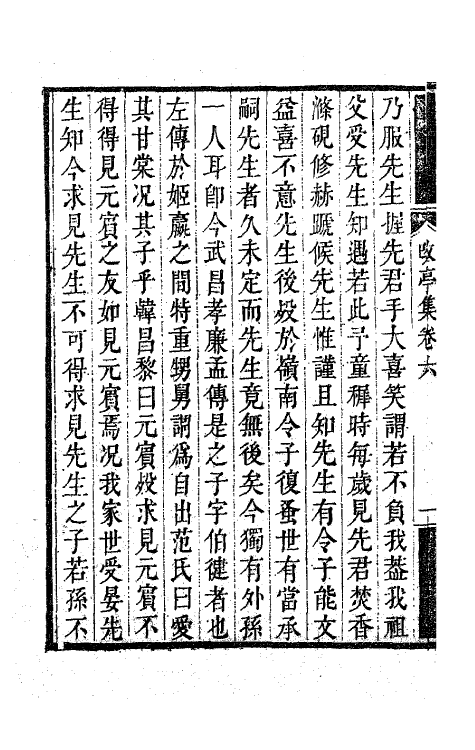 改亭集卷六
一
乃服先生握先君手大喜笑謂若不負我葢我祖
父受先生知遇若此予童穉時每歲見先君焚香
滌硯修赫蹏候先生惟謹且知先生有令子能文
益喜不意先生後歿於嶺南令子復蚤世有當承
嗣先生者久未定而先生竟無後矣今獨有外孫
一人耳卽今武昌孝廉孟傳是之子字伯健者也
左傳於姬嬴之間特重甥舅謂爲自出范氏曰愛
其甘棠况其子乎韓昌黎曰元賓歿求見元賓不
得得見元賓之友如見元賓焉况我家世受晏先
生知今求見先生不可得求見先生之子若孫不